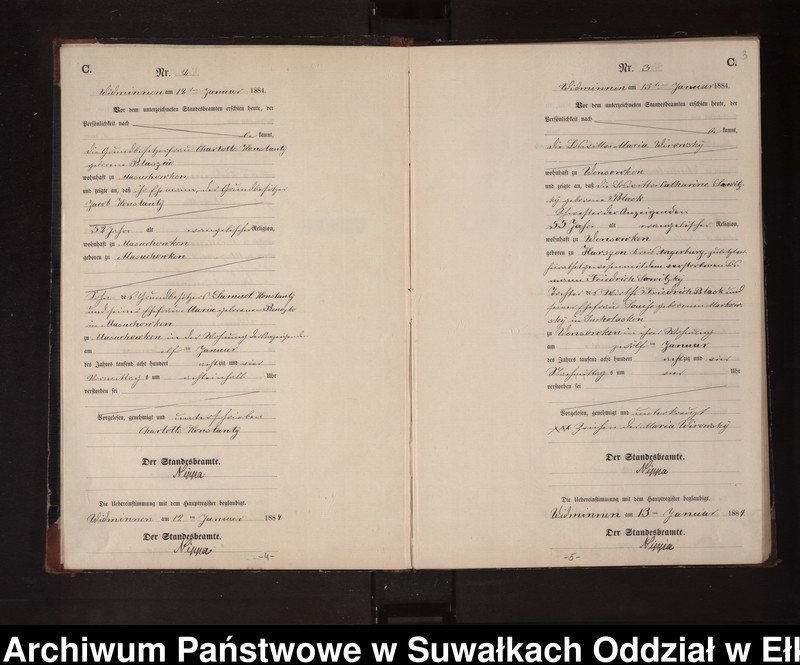 C.
Nr. 2
Widminnen am 12ten Januar 1884.
Vor dem unterzeichneten Standesbeamten erschien heute, der
Persönlichkeit nach
be kannt,
die Grundbesitzerfrau Charlotte Konstanty
geborene Blaszär
wohnhaft zu Masuchowken
und zeigte an, daß ihr Ehemann, der Grundbesitzer
Jacob Konstanty
52 Jahre alt evangelischer Religion,
wohnhaft zu Masuchowken
geboren zu Masuchowken
Sohn des Grundbesitzers Samuel Konstanty
und seiner Ehefrau Maria geborenen
in Masuchowken
zu Masuchowken in der Wohnung der Anzeigende
am elften Januar
des Jahres tausend acht hundert achtzig und vier
Vormittags um achteinhalb Uhr
verstorben sei
Vorgelesen, genehmigt und unterschrieben
Charlotte Konstanty
Der Standesbeamte.
Nippa
Die Uebereinstimmung mit dem Hauptregister beglaubigt.
Widminnen am 12ten Januar 1884
Der Standesbeamte.
Nippa
-4-
3
C.
Nr. 3
Widminnen am 13ten Januar 1884.
Vor dem unterzeichneten Standesbeamten erschien heute, der
Persönlichkeit nach
be kannt,
die Loswittwe Maria Wirowsky
wohnhaft zu Wensowken
und zeigte an, daß die Loswittwe Catharine Sawitz-
ky geborene Black
Schwester der Anzeigenden
55 Jahre alt evangelischer Religion,
wohnhaft zu Wensowken
geboren zu Harszen Kreis Angerburg, zuletzt
verheirathet gewesen mit dem verstorbenen Los-
mann Friedrich Sawitzky
Tochter des Wirths Friedrich Black und
seiner Ehefrau Louise geborenen Markow-
sky in Sucholasken
zu Wensowken in ihrer Wohnung
am zwölften Januar
des Jahres tausend acht hundert achtzig und vier
Nachmittags um vier Uhr
verstorben sei
Vorgelesen, genehmigt und unterkreuzt
XXX Zeichen der Maria Wirowsky
Der Standesbeamte.
Nippa
Die Uebereinstimmung mit dem Hauptregister beglaubigt.
Widminnen am 13ten Januar 1884
Der Standesbeamte.
Nippa
-5-
Archiwum Państwowe w Suwałkach Oddział w Ełk